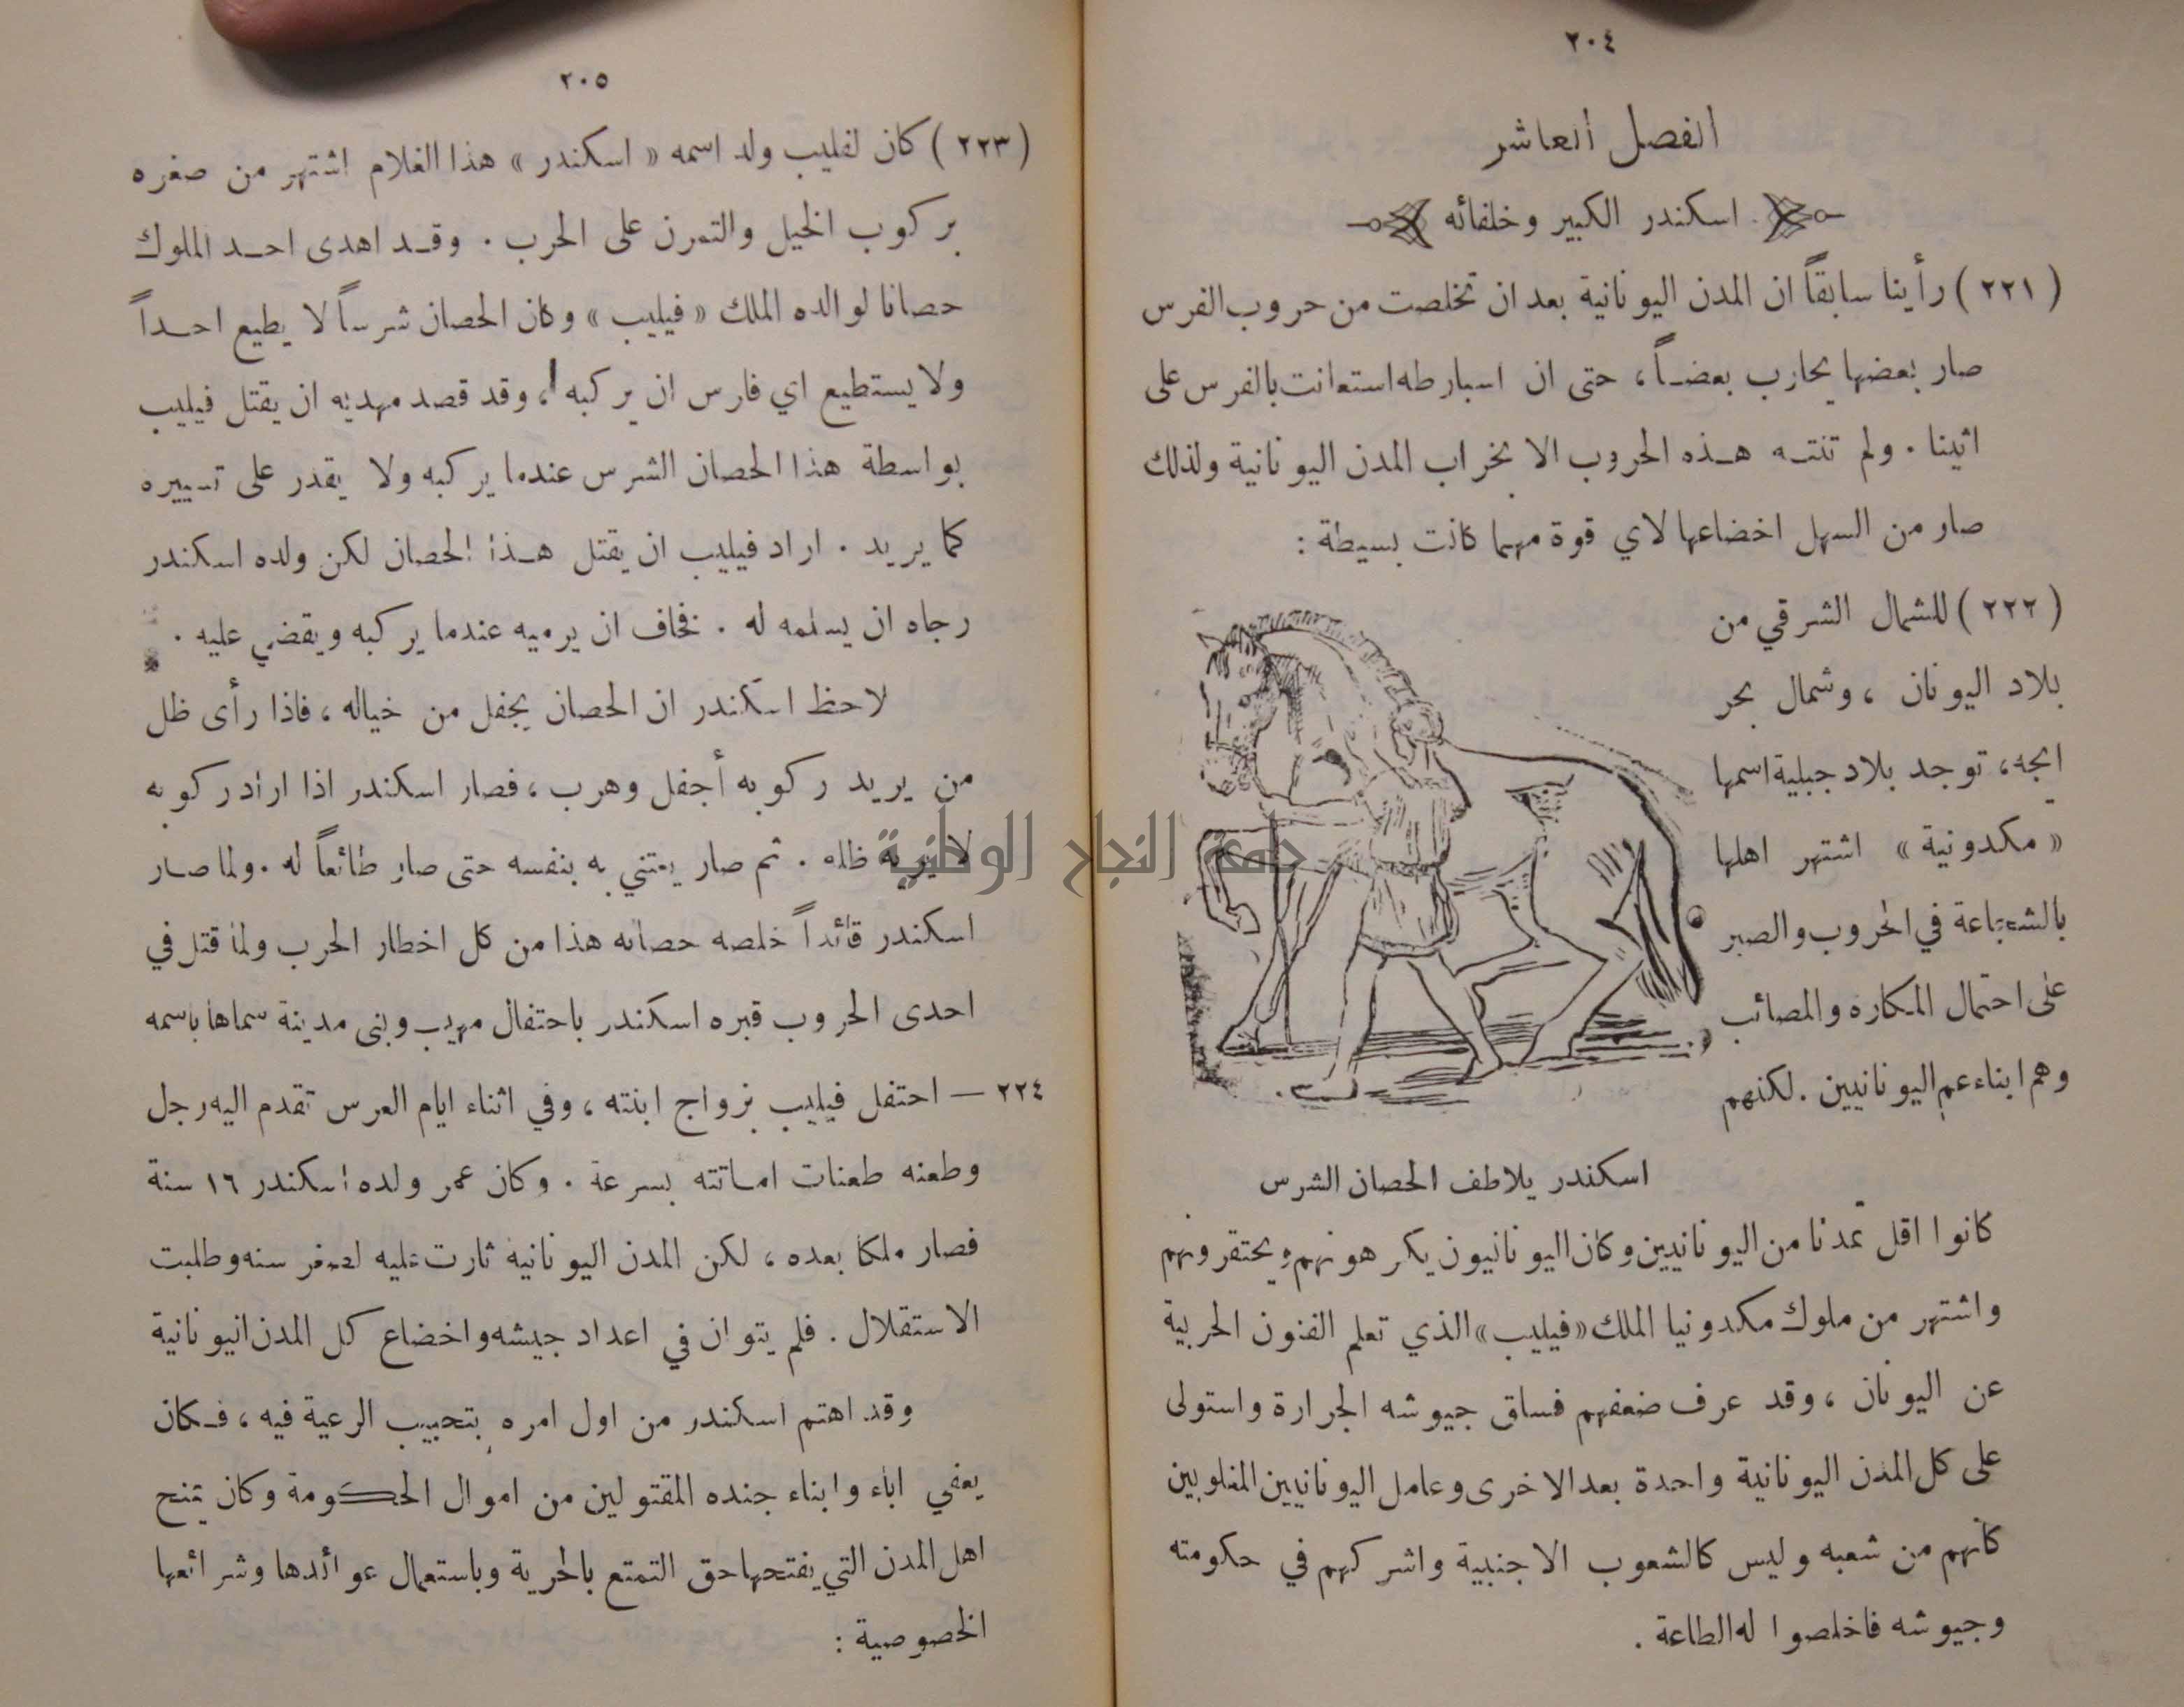 ٢٠٤
الفصل العاشر
اسكندر الكبير وخلفائه
(٢٢١) رأينا سابقاً ان المدن اليونانية بعد ان تخلصت من حروب الفرس
صار بعضها يحارب بعضاً، حتى ان اسبارطه استعانت بالفرس على
اثينا . ولم تنته هذه الحروب الا بخراب المدن اليونانية ولذلك
صار من السهل اخضاعها لاي قوة مهما كانت بسيطة :
(٢٢٢) للشمال الشرقي من
بلاد اليونان ، وشمال بحر
ايجه، توجد بلاد جبلية اسمها
« مكدونية » اشتهر اهلها
بالشجاعة في الحروب والصبر
على احتمال المكاره والمصائب
وهم ابناء عم اليونانيين . لكنهم
اسكندر يلاطف الحصان الشرس
كانوا اقل تمدنا من اليونانيين وكان اليونانيون يكرهونهم ويحتقرونهم
واشتهر من ملوك مكدونيا الملك «فيليب» الذي تعلم الفنون الحربية
عن اليونان ، وقد عرف ضعفهم فساق جيوشه الجرارة واستولى
على كل المدن اليونانية واحدة بعد الاخرى وعامل اليونانيين المغلوبين
كأنهم من شعبه وليس كالشعوب الاجنبية واشركهم في حكومته
وجيوشه فاخلصوا له الطاعة .
٢٠٥
(٢٢٣) كان لفليب ولد اسمه « اسكندر » هذا الغلام اشتهر من صغره
بركوب الخيل والتمرن على الحرب . وقد اهدى احد الملوك
حصانا لوالده الملك «فيليب» وكان الحصان شرساً لا يطيع احداً
ولا يستطيع اي فارس ان يركبه ، وقد قصد مهديه ان يقتل فيليب
بواسطة هذا الحصان الشرس عندما يركبه ولا يقدر على تسييره
كما يريد . اراد فيليب ان يقتل هذا الحصان لكن ولده اسكندر
رجاه ان يسلمه له . فخاف ان يرميه عندما يركبه ويقضي عليه .
لاحظ اسكندر ان الحصان يجفل من خياله ، فاذا رأى ظل
من يريد ركوبه أجفل وهرب ، فصار اسكندر اذا اراد ركوبه
لا يريه ظله . ثم صار يعتني به بنفسه حتى صار طائعاً له . ولما صار
اسكندر قائداً خلصه حصانه هذا من كل اخطار الحرب ولما قتل في
احدى الحروب قبره اسكندر باحتفال مهيب وبنى مدينة سماها باسمه
٢٢٤ — احتفل فيليب بزواج ابنته ، وفي اثناء ايام العرس تقدم اليه رجل
وطعنه طعنات اماتته بسرعة . وكان عمر ولده اسكندر ١٦ سنة
فصار ملكا بعده ، لكن المدن اليونانية ثارت عليه لصغر سنه وطلبت
الاستقلال . فلم يتوان في اعداد جيشه واخضاع كل المدن اليونانية
وقد اهتم اسكندر من اول امره بتحبيب الرعية فيه ، فكان
يعفي اباء وابناء جنده المقتولين من اموال الحكومة وكان يمنح
اهل المدن التي يفتحها حق التمتع بالحرية وباستعمال عوائدها وشرائعها
الخصوصية :
جامعة النجاح الوطنية